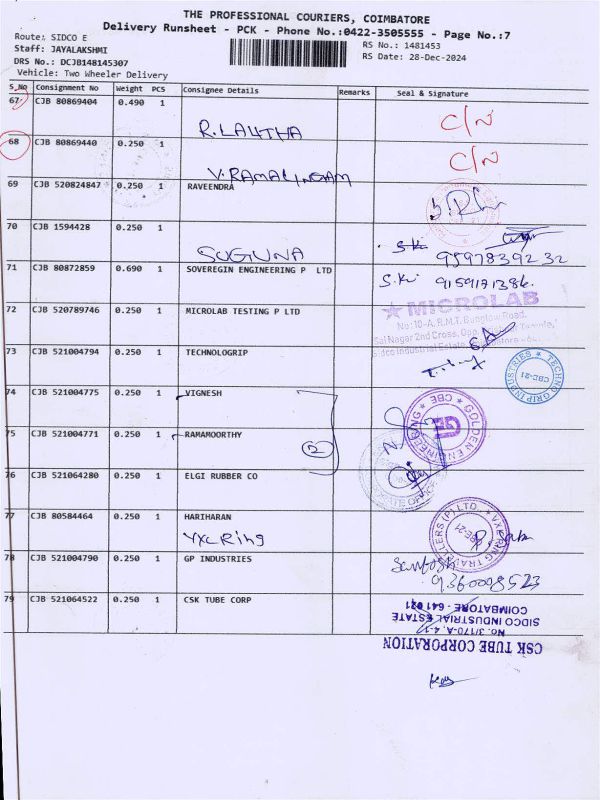 THE PROFESSIONAL COURIERS, COIMBATORE
Delivery Runsheet - PCK - Phone No.:0422-3505555 - Page No.:7
Route: SIDCO E
Staff: JAYALAKSHMI
DRS No.: DCJB148145307
Vehicle: Two Wheeler Delivery
RS No.: 1481453
RS Date: 28-Dec-2024
S.No Consignment No Weight PCS Consignee Details Remarks Seal & Signature
67 CJB 80869404 0.490 1
R.LALITHA C/N
68 CJB 80869440 0.250 1 C/N
V.RAMALINGAM
69 CJB 520824847 0.250 1 RAVEENDRA
70 CJB 1594428 0.250 1
SUGUNA
71 CJB 80872859 0.690 1 SOVEREGIN ENGINEERING P LTD
72 CJB 520789746 0.250 1 MICROLAB TESTING P LTD
MICROLAB
No:10-A, R.M.T. Bunglow Road,
Sai Nagar 2nd Cross,
73 CJB 521004794 0.250 1 TECHNOGRIP
TECHNO GRIP INDUSTRIES CBE-21
74 CJB 521004775 0.250 1 VIGNESH
GOLDEN ENGINEERING CBE GE
75 CJB 521004771 0.250 1 RAMAMOORTHY
2
76 CJB 521064280 0.250 1 ELGI RUBBER CO
77 CJB 80584464 0.250 1 HARIHARAN
VXL Ring
VXL RING TRAVELLERS (P) LTD. CBE-21
78 CJB 521004790 0.250 1 GP INDUSTRIES
Santosh
9360008523
79 CJB 521064522 0.250 1 CSK TUBE CORP
CSK TUBE CORPORATION
NO. 3/170-A-4-1
SIDCO INDUSTRIAL ESTATE
COIMBATORE - 641 021